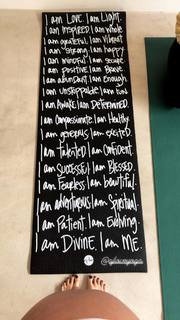 I am Love. I am Light.
I am Inspired. I am whole
I am grateful. I am Vibrant
I am strong. I am happy
I am mindful. I am secure
I am positive. I am Brave
I am abundant. I am Enough
I am unstoppable. I am kind
I am Awake. I am Determined.
I am Compassionate. I am Healthy.
I am generous. I am excited.
I am Talented. I am Confident.
I am Successful. I am Blessed.
I am Fearless. I am beautiful.
I am adventurous. I am Spiritual.
I am Patient. I am Evolving.
I am Divine. I am Me.